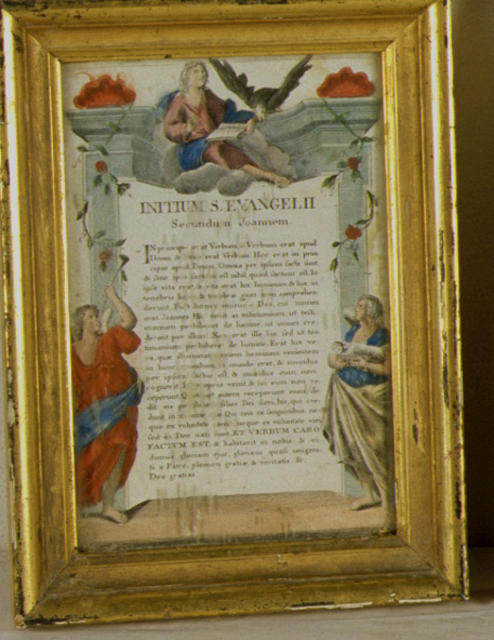 INITIUM S. EVANGELII
Secundum Joannem.
IN principio erat Verbum, & Verbum erat apud
Deum, & Deus erat Verbum. Hoc erat in prin
cipio apud Deum. Omnia per ipsum facta sunt
& sine ipso factum est nihil, quod factum est. In
ipso vita erat, & vita erat lux hominum: & lux in
tenebris lucet, & tenebrae eam non comprehen
derunt. Fuit homo missus a Deo, cui nomen
erat Joannes. Hic venit in testimonium, ut testi
monium perhiberet de lumine, ut omnes cre
derent per illum. Non erat ille lux, sed ut tes
timonium perhiberet de lumine. Erat lux ve
ra, quae illuminat omnem hominem venientem
in hunc mundum. In mundo erat, & mundus
per ipsum factus est, & mundus eum non
cognovit. In propria venit, & sui eum non re
ceperunt. Quotquot autem receperunt eum, de
dit eis filios Dei fieri, his, qui cre
dunt in nomine ejus. Qui non ex sanguinibus, ne
que ex voluntate carnis, neque ex voluntate viri
sed ex Deo nati sunt. ET VERBUM CARO
FACTUM EST, & habitavit in nobis, & vi
dimus gloriam ejus, gloriam quasi unigeni
ti a Patre, plenum gratiae & veritatis. R.
Deo gratias.